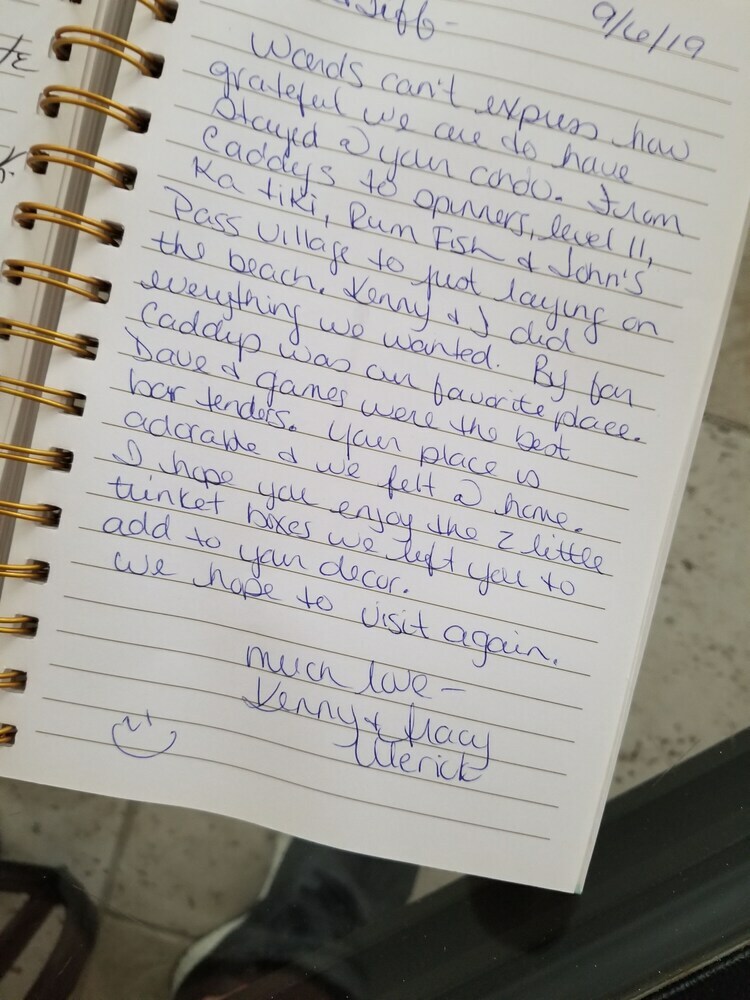 Jeff- 9/6/19
Words can't express how
grateful we are to have
stayed @ your condo. From
Caddys to spinners, level 11,
Ka Tiki, Rum Fish & John's
Pass Village to just laying on
the beach. Kenny & I did
everything we wanted. By far
Caddys was our favorite place.
Dave & games were the best
bar tenders. Your place is
adorable & we felt @ home.
I hope you enjoy the 2 little
trinket boxes we left you to
add to your decor.
We hope to visit again.
much love -
Kenny & Tracy